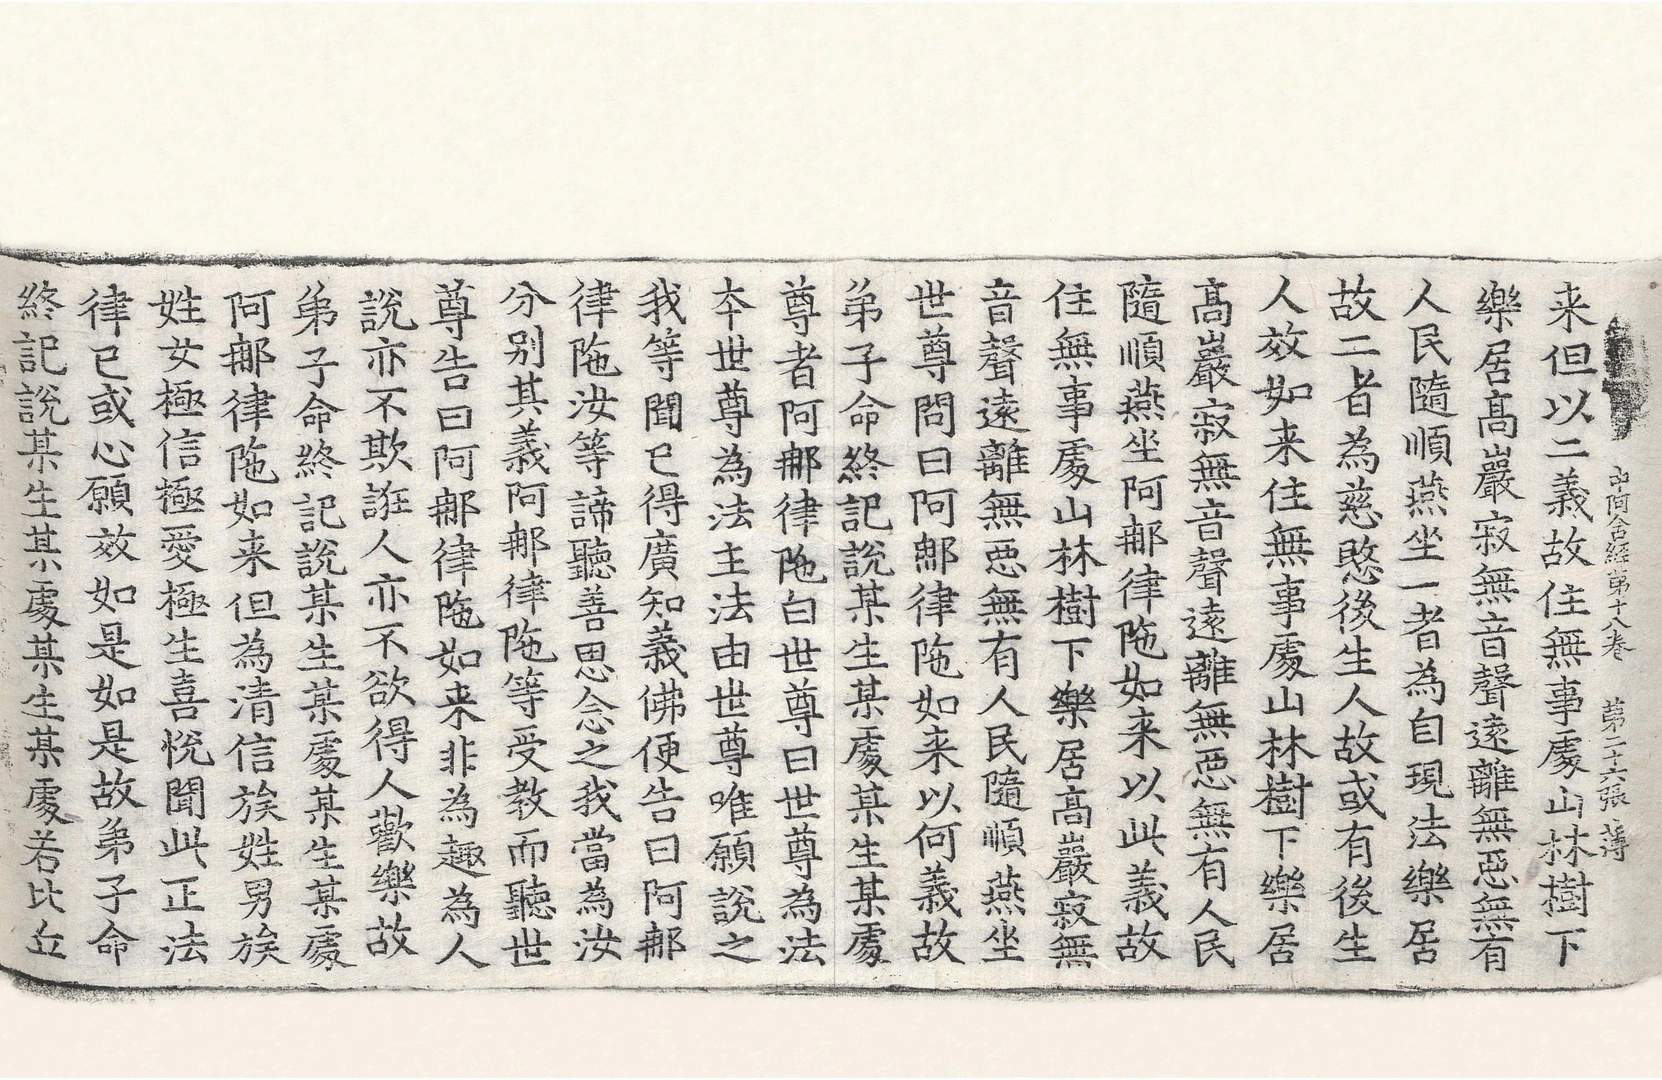 中阿含経第十八巻 第二十六張 薄
来但以二義故住無事處山林樹下
樂居髙巖寂無音聲遠離無惡無有
人民隨順燕坐一者為自現法樂居
故二者為慈愍後生人故或有後生
人效如来住無事處山林樹下樂居
髙巖寂無音聲遠離無惡無有人民
隨順燕坐阿那律陁如来以此義故
住無事處山林樹下樂居髙巖寂無
音聲遠離無惡無有人民隨順燕坐
世尊問曰阿那律陁如来以何義故
弟子命終記説某生某處某生某處
尊者阿那律陁白世尊曰世尊為法
本世尊為法主法由世尊唯願説之
我等聞已得廣知義佛便告曰阿那
律陁汝等諦聽善思念之我當為汝
分別其義阿那律陁等受教而聽世
尊告曰阿那律陁如来非為趣為人
説亦不欺誑人亦不欲得人歡樂故
弟子命終記説某生某處某生某處
阿那律陁如来但為清信族姓男族
姓女極信極愛極生喜悅聞此正法
律已或心願效如是如是故弟子命
終記説某生某處某生某處若比丘